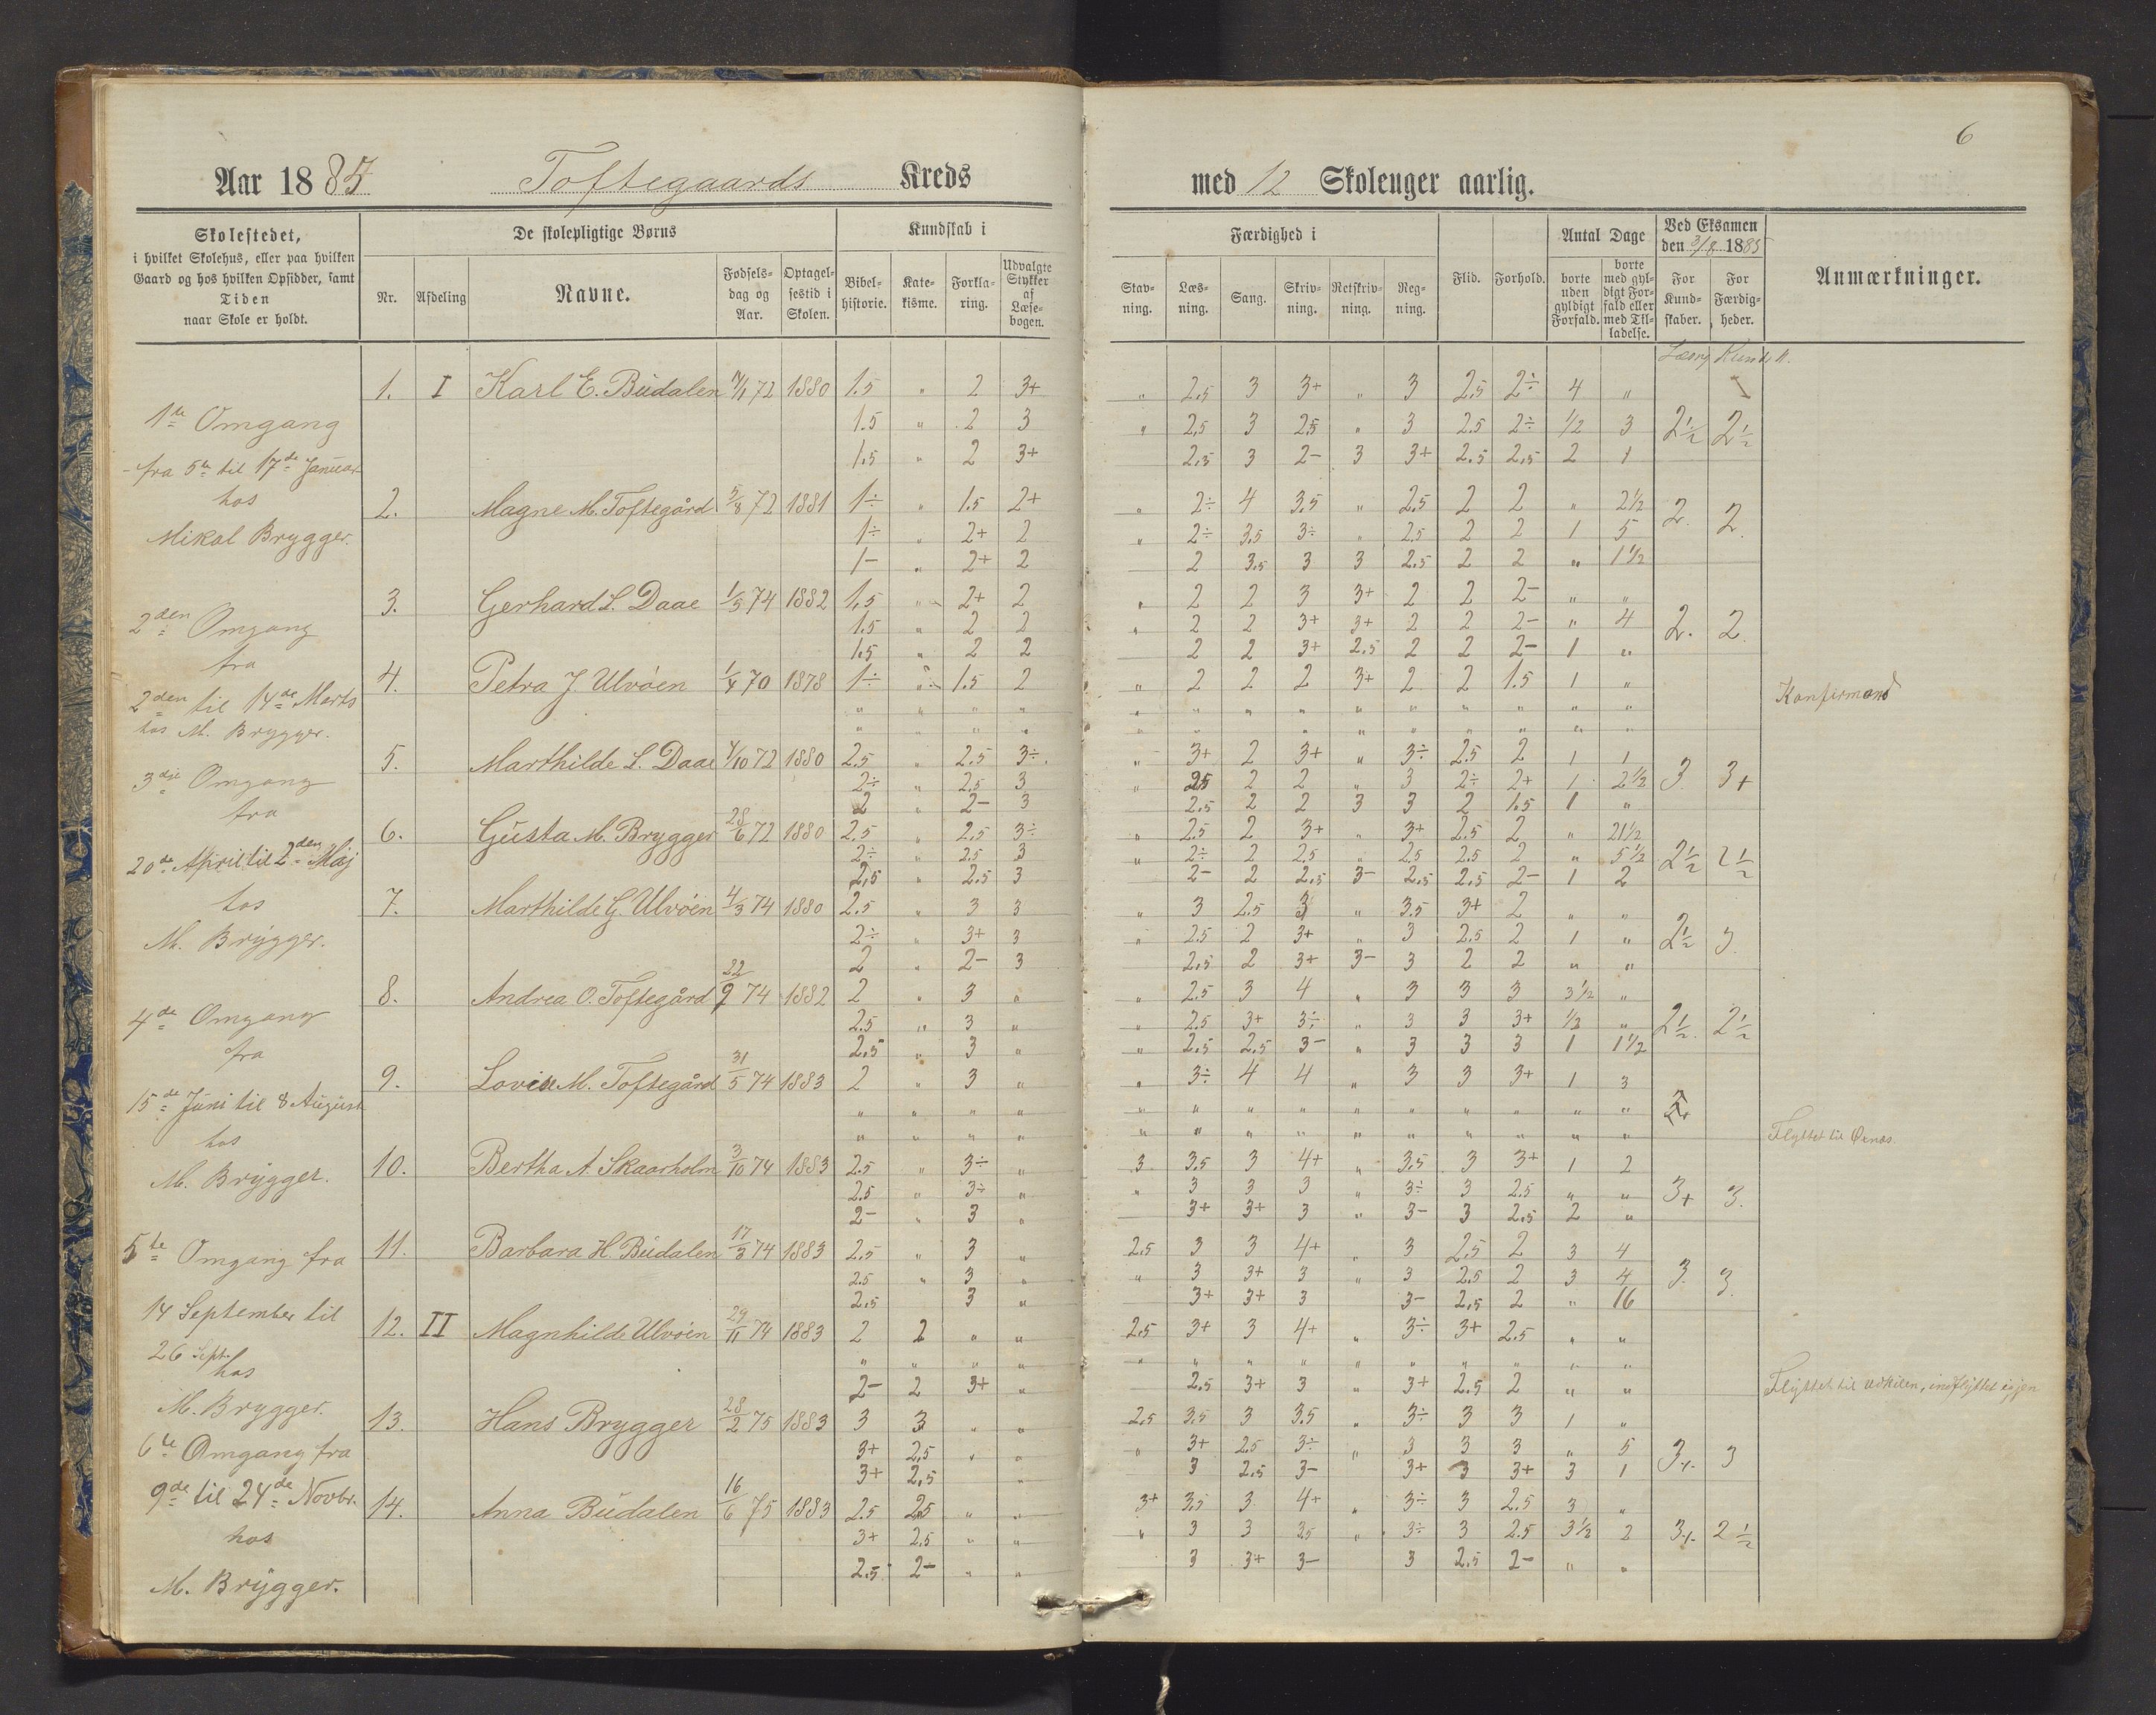 6
Aar 1885 Toftegaards Kreds med 12 Skoleuger aarlig.
Skolestedet, i hvilket Skolehus, eller paa hvilken Gaard og hos hvilken Opsidder, samt Tiden naar Skole er holdt.
De skolepligtige Børns
Nr. Afdeling Navne. Fødsels-dag og Aar. Optagel-sestid i Skolen.
Kundskab i
Bibel-historie. Kate-kisme. Forkla-ring. Udvalgte Stykker af Læse-bogen.
Færdighed i
Stav-ning. Læs-ning. Sang. Skriv-ning. Retskriv-ning. Reg-ning.
Flid. Forhold.
Antal Dage
borte uden gyldigt Forfald. borte med gyl-digt For-fald eller med Til-ladelse.
Ved Eksamen den 3/8 1885
For Kund-skaber. For Færdig-heder.
Anmærkninger.
1ste Omgang
fra 5te til 17de Januar
hos
Mikal Brygger.
2den Omgang
fra
2den til 14de Marts
hos M. Brygger.
3dje Omgang
fra
20de April til 2den Maj
hos
M. Brygger.
4de Omgang
fra
15de Juni til 8 August
hos
M. Brygger.
5te Omgang fra
14 September til
26 Sept. hos
M. Brygger.
6te Omgang fra
9de til 24de Novbr.
hos
M. Brygger.
1. I Karl E. Budalen 72 1880 1.5 " 2 3+ " 2.5 3 3+ " 3 2.5 2÷ 4 "
1.5 " 2 3 " 2.5 3 2.5 " 3 2.5 2÷ 1/2 3 2 1/2 2 1/2
1.5 " 2 3+ 2.5 3 2- 3 3+ 2.5 2.5 2 1
2. Magne M. Toftegård 5/8 72 1881 1÷ " 1.5 2+ " 2÷ 4 3.5 " 2.5 2 2 " 2 1/2 2. 2.
1÷ " 2+ 2 " 2÷ 3.5 3÷ " 2.5 2 2 1 5
1- " 2+ 2 2 3.5 3 3 2.5 2 2 " 1 1/2
3. Gerhard L. Daae 1/5 74 1882 1.5 " 2+ 2 " 2 2 3 3+ 2 2 2- " "
1.5 " 2 2 " 2 2 3+ 3+ 2 2 2- " 4 2. 2.
1.5 " 2 2 2 2 3+ 2.5 2 2 2- 1 "
4. Petra J. Ulvöen 1/4 70 1878 1÷ " 1.5 2 " 2 2 2 3+ 2 2 1.5 1 " Konfirmand
5. Marthilde L. Daae 4/10 72 1880 2.5 " 2.5 3÷ " 3+ 2 3+ " 3÷ 2.5 2 1 1
2÷ " 2.5 3 " 2.5 2 2 " 3 2÷ 2+ 1 2 1/2 3 3+
2 " 2- 3 2.5 2 2 3 3 2 1.5 1 "
6. Gusta M. Brygger 28/6 72 1880 2.5 " 2.5 3÷ " 2.5 2 3+ " 3+ 2.5 2 " 21 1/2
2÷ " 2.5 3 " 2÷ 2 2.5 " 2.5 2.5 2 " 5 1/2 2 1/2 2 1/2
2.5 " 2.5 3 2- 2 2.5 3- 2.5 2.5 2- 1 2
7. Marthilde G. Ulvöen 4/3 74 1880 2.5 " 3 3 " 3 2.5 3 " 3.5 3+ 2 " "
2÷ " 3+ 3 " 2.5 2 3+ " 3 2.5 2 1 " 2 1/2 3
2 " 2- 3 2.5 2 3+ 3- 3 2 2 " "
8. Andrea O. Toftegård 22/9 74 1882 2 " 3 " " 2.5 3 4 " 3 3 3 3 1/2 "
2.5 " 3 " " 2.5 3+ 3÷ " 3 3 3+ 1/2 " 2 1/2 2 1/2
2.5 " 3 " " 2.5 2.5 3- " 3 3 3 1 1 1/2
9. Lovise M. Toftegård 31/5 74 1883 2 " 3 " " 3÷ 4 4 " 3 3 3+ 1 3
Flyttet til Ørnæs.
10. Bertha A. Skaarholm 3/10 74 1883 2.5 " 3÷ " 3 3.5 3 4+ " 3.5 3 3+ 1 2
2.5 " 3÷ " " 3 3 3 " 3÷ 3 2.5 " " 3+ 3.
2- " 3 " 3+ 3+ 3 " 3- 3 2.5 2 "
11. Barbara H. Budalen 17/3 74 1883 2.5 " 3 " 2.5 3 3 4+ " 3 2.5 2 3 4
2.5 " 3 " " 3 3+ 3 " 3 2.5 2 3 4 3. 3.
2.5 3 " 3+ 3+ 3 3- 2.5 2 " 16
12. II Magnhilde Ulvöen 29/11 74 1883 2 2 " " 2.5 3+ 3 4+ " 3÷ 3+ 2.5 " "
2- 2 3+ " 2.5 3+ 3 " 3+ 2.5 2 " " Flyttet til
13. Hans Brygger 28/2 75 1883 3 3 " " 2.5 3.5 3 3.5 " 3÷ 3 3 1 "
3+ 2.5 " " " 3+ 2.5 3÷ " 3 3 3 " 5 3+ 3
3+ 2.5 " 3 2.5 3- 3+ 3 3+ 3 1
14. Anna Budalen 16/6 75 1883 2.5 2.5 " " 3+ 3.5 3 4+ " 3÷ 3 2.5 3 "
3+ 2.5 " " " 3 3 3.5 " 3÷ 3 2.5 3 1/2 2 3+ 2 1/2
2.5 2- " " 3 3+ 3- 3 2.5 2- " "